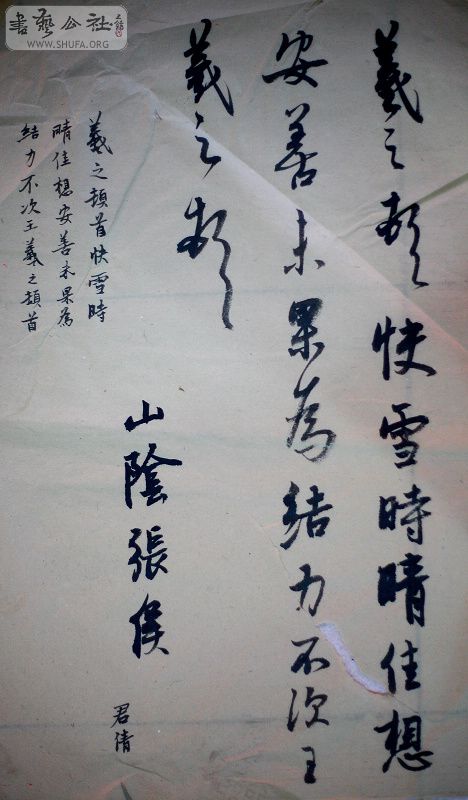 羲之頓首快雪時晴佳想
安善未果為結力不次王
羲之頓首
羲之頓首快雪時
晴佳想安善未果為
結力不次王羲之頓首
山陰張侯
君倩
書藝公社
WWW.SHUFA.ORG